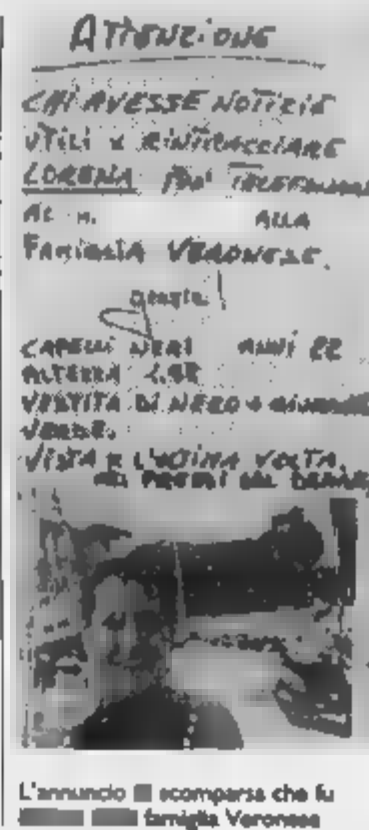 ATTENZIONE
CHI AVESSE NOTIZIE
UTILI X RINTRACCIARE
LORENA PUO' TELEFONARE
AL N. ALLA
FAMIGLIA VERONESE.
GRAZIE!
CAPELLI NERI ANNI 22
ALTEZZA
VESTITA DI NERO
VISTA X L'ULTIMA VOLTA
NEI PRESSI DEL
L'annuncio scomparsa che fu
famiglia Veronese